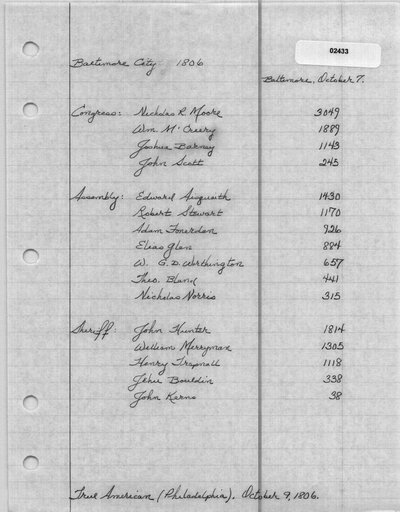 02433
Baltimore City 1806
Baltimore, October 7.
Congress: Nicholas R. Moore 3049
Wm. McCreery 1889
Joshua Barney 1143
John Scott 245
Assembly: Edward Aisquith 1430
Robert Stewart 1170
Adam Fonerden 926
Elias Glen 884
W. G. D. Worthington 657
Theo. Bland 441
Nicholas Norris 315
Sheriff: John Hunter 1814
William Merryman 1305
Henry Trapnall 1118
Jehu Bouldin 338
John Karns 38
True American (Philadelphia). October 9, 1806.